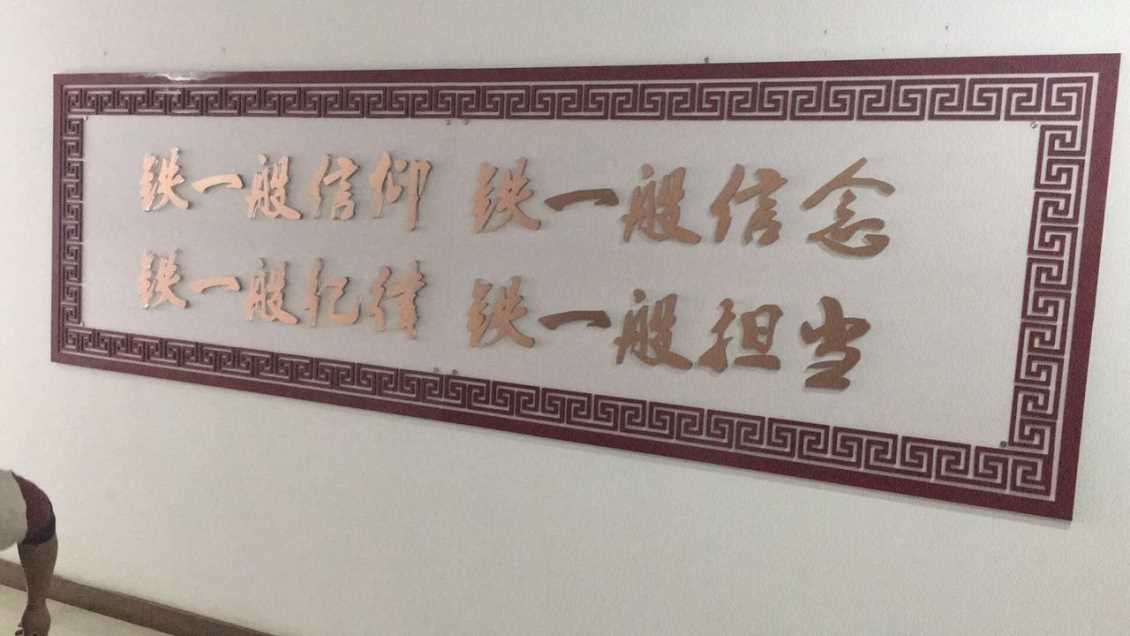 铁一般信仰 铁一般信念
铁一般纪律 铁一般担当